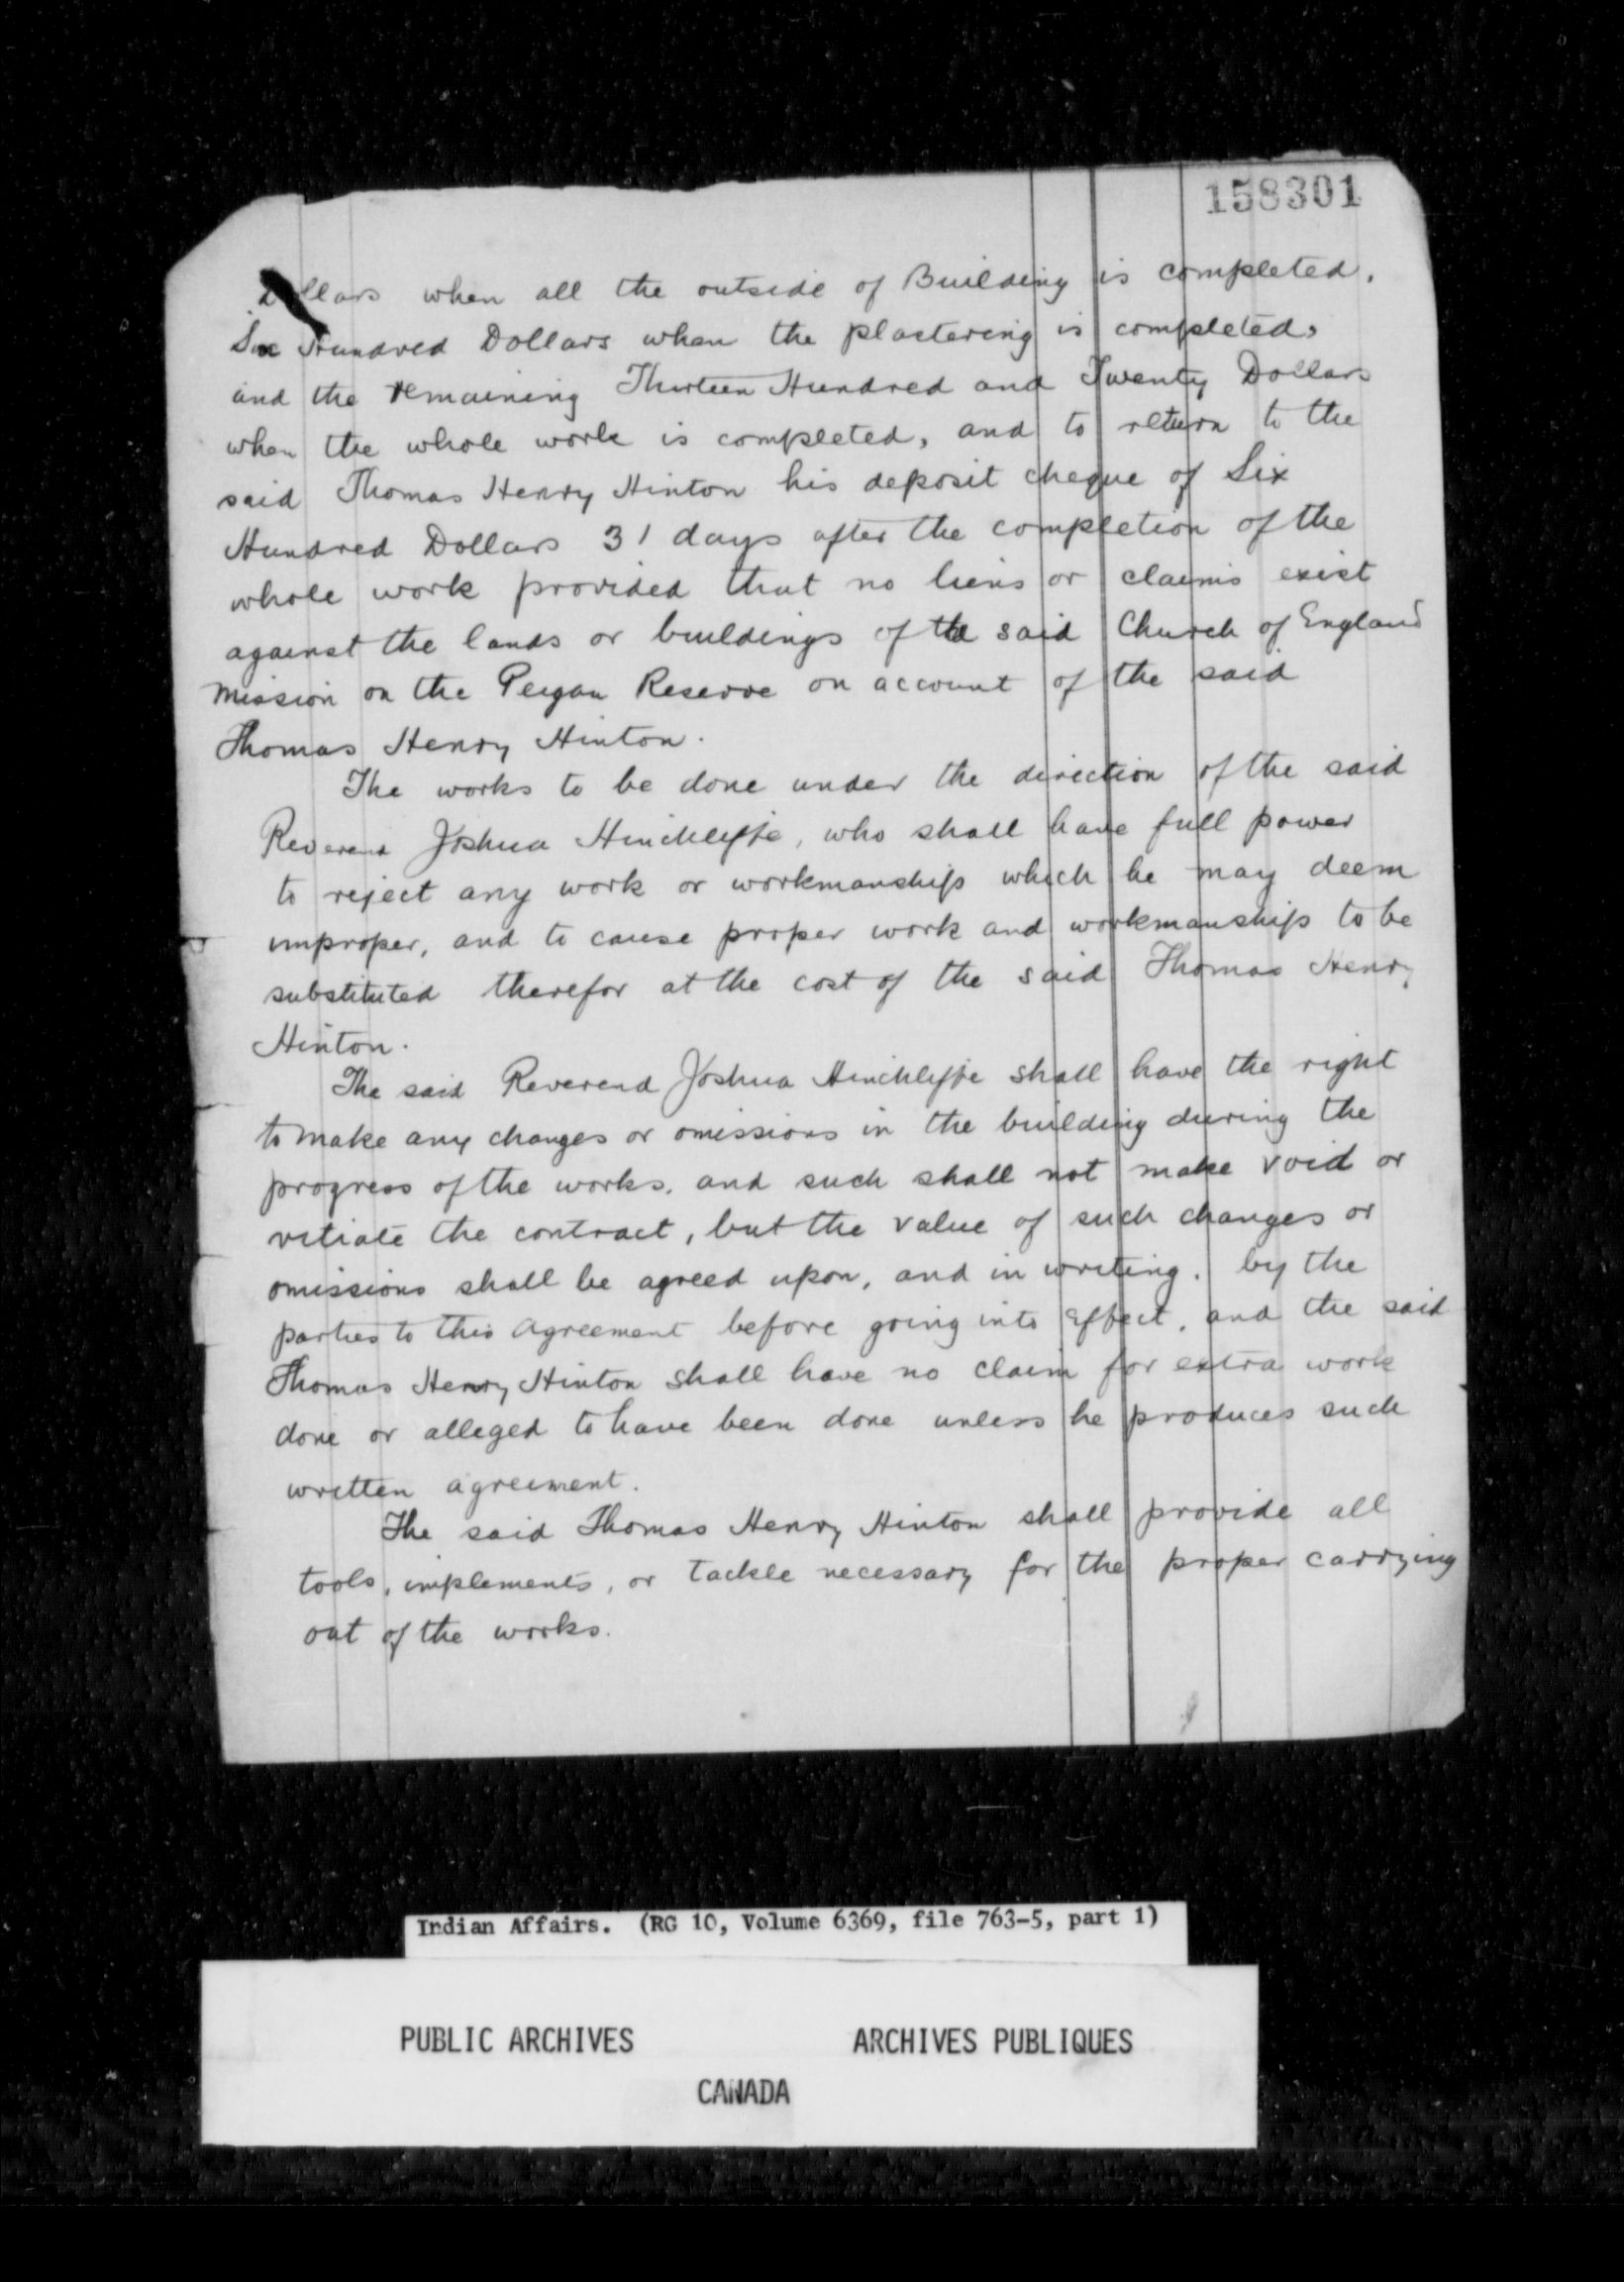 158301
Dollars when all the outside of Building is completed,
Six Hundred Dollars when the plastering is completed,
and the remaining Thirteen Hundred and Twenty Dollars
when the whole work is completed, and to return to the
said Thomas Henry Hinton his deposit cheque of Six
Hundred Dollars 31 days after the completion of the
whole work provided that no liens or claims exist
against the lands or buildings of the said Church of England
Mission on the Peigan Reserve on account of the said
Thomas Henry Hinton.
The works to be done under the direction of the said
Reverend Joshua Hinchliffe, who shall have full power
to reject any work or workmanship which he may deem
improper, and to cause proper work and workmanship to be
substituted therefor at the cost of the said Thomas Henry
Hinton.
The said Reverend Joshua Hinchliffe shall have the right
to make any changes or omissions in the building during the
progress of the works, and such shall not make void or
vitiate the contract, but the value of such changes or
omissions shall be agreed upon, and in writing, by the
parties to this Agreement before going into effect, and the said
Thomas Henry Hinton shall have no claim for extra work
done or alleged to have been done unless he produces such
written agreement.
The said Thomas Henry Hinton shall provide all
tools, implements, or tackle necessary for the proper carrying
out of the works.
Indian Affairs. (RG 10, Volume 6369, file 763-5, part 1)
PUBLIC ARCHIVES ARCHIVES PUBLIQUES
CANADA